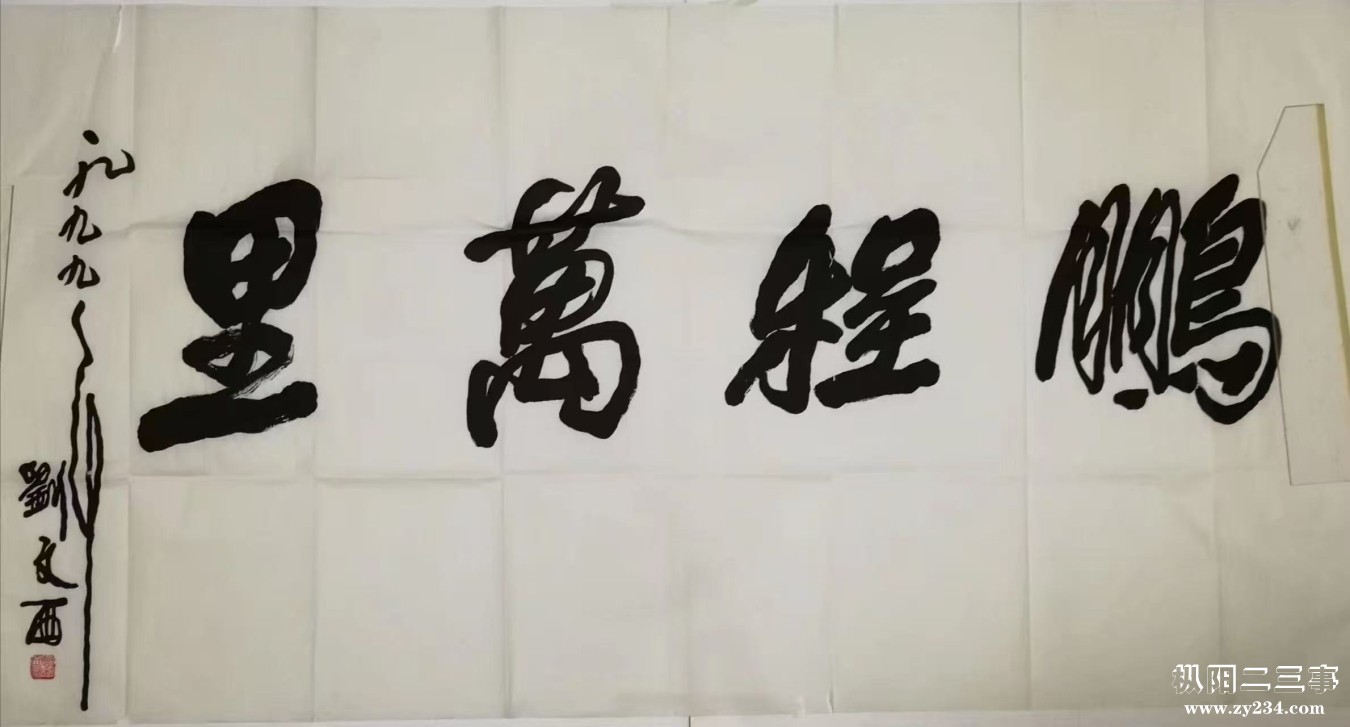 鵬程萬里
一九九九年
劉文西
枞阳二三事
www.zy234.com